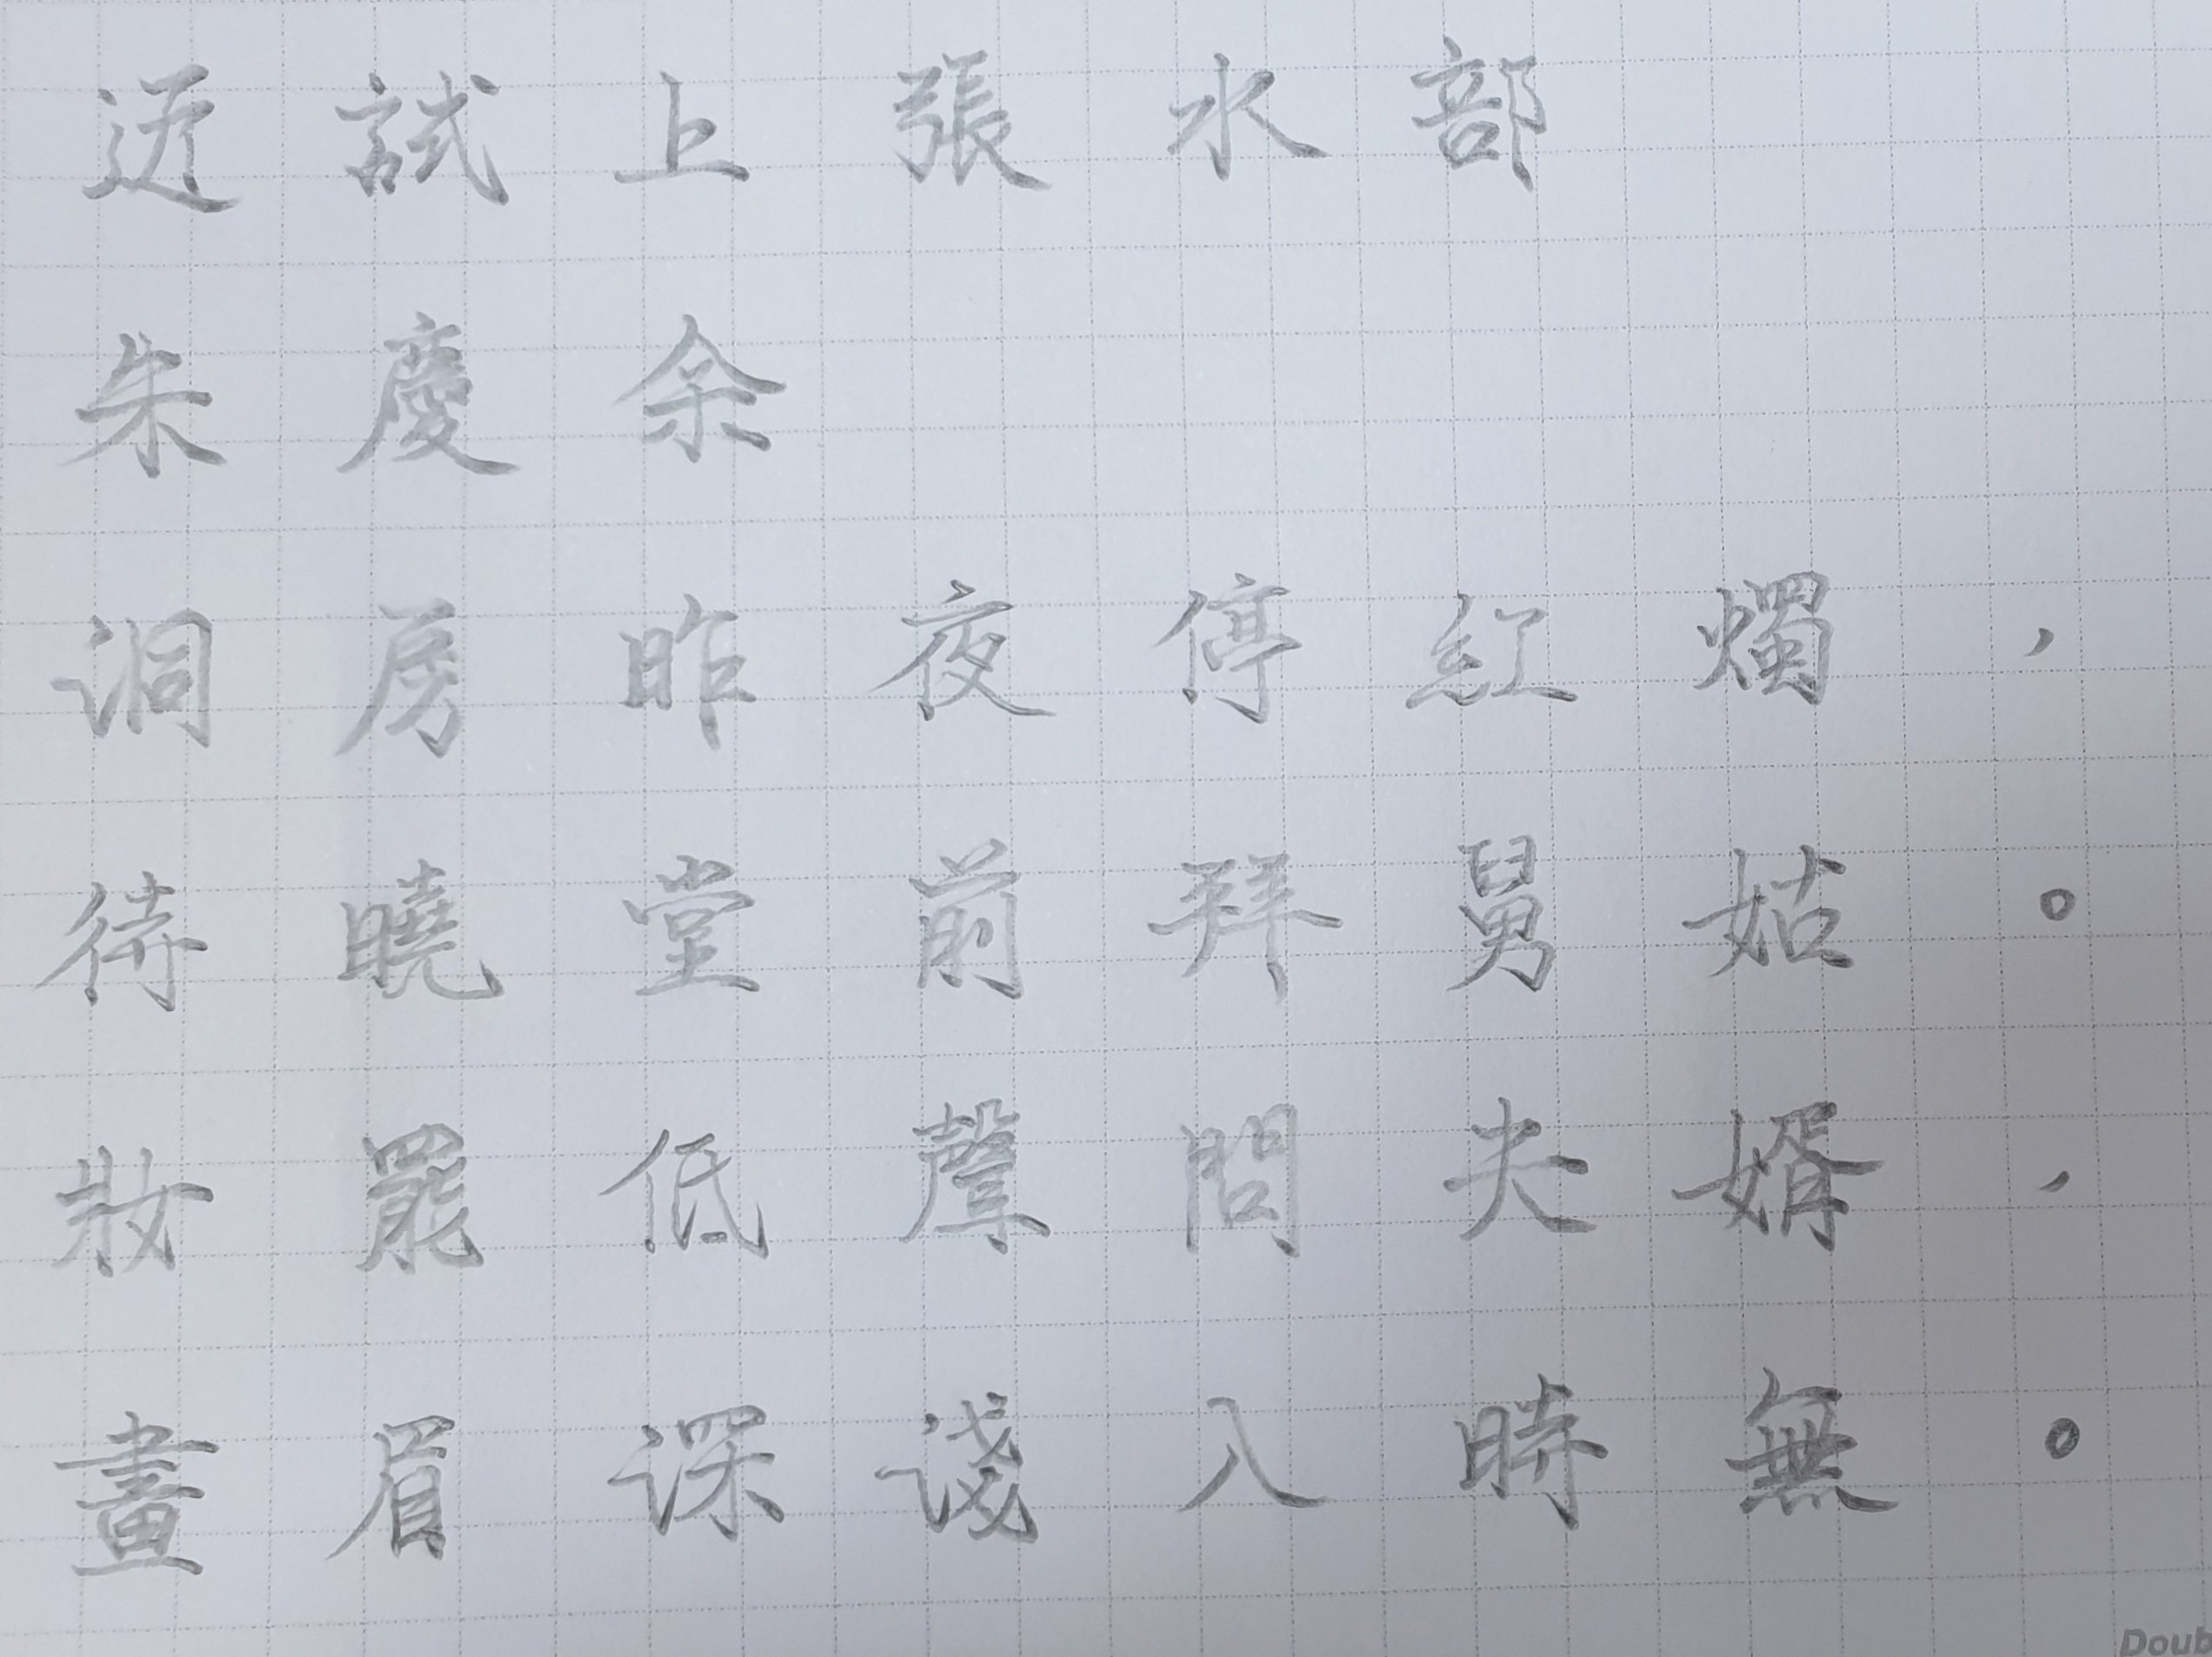 近試上張水部
朱慶余
洞房昨夜停紅燭，
待曉堂前拜舅姑。
妝罷低聲問夫婿，
畫眉深淺入時無。
Doub